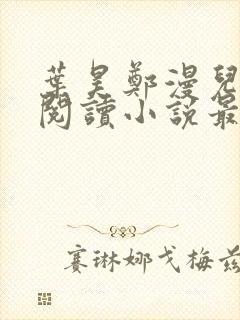 葉昊鄭漫兒
閱讀小說最
賽琳娜戈梅茲